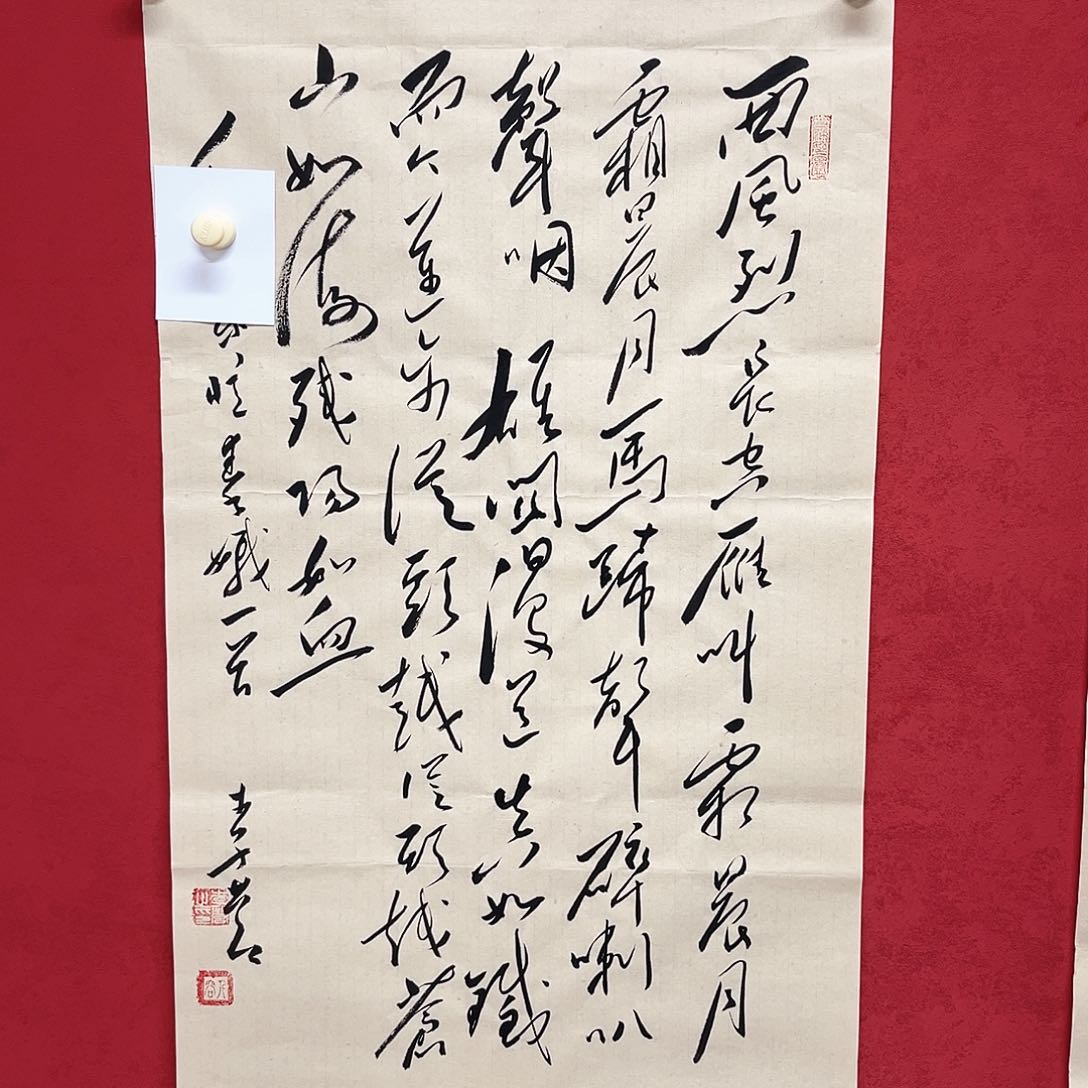 西風烈長空雁叫霜晨月
霜晨月馬蹄聲碎喇叭
聲咽 雄關漫道真如鐵
而今邁步從頭越從頭越蒼
山如海殘陽如血
憶秦娥一首 李